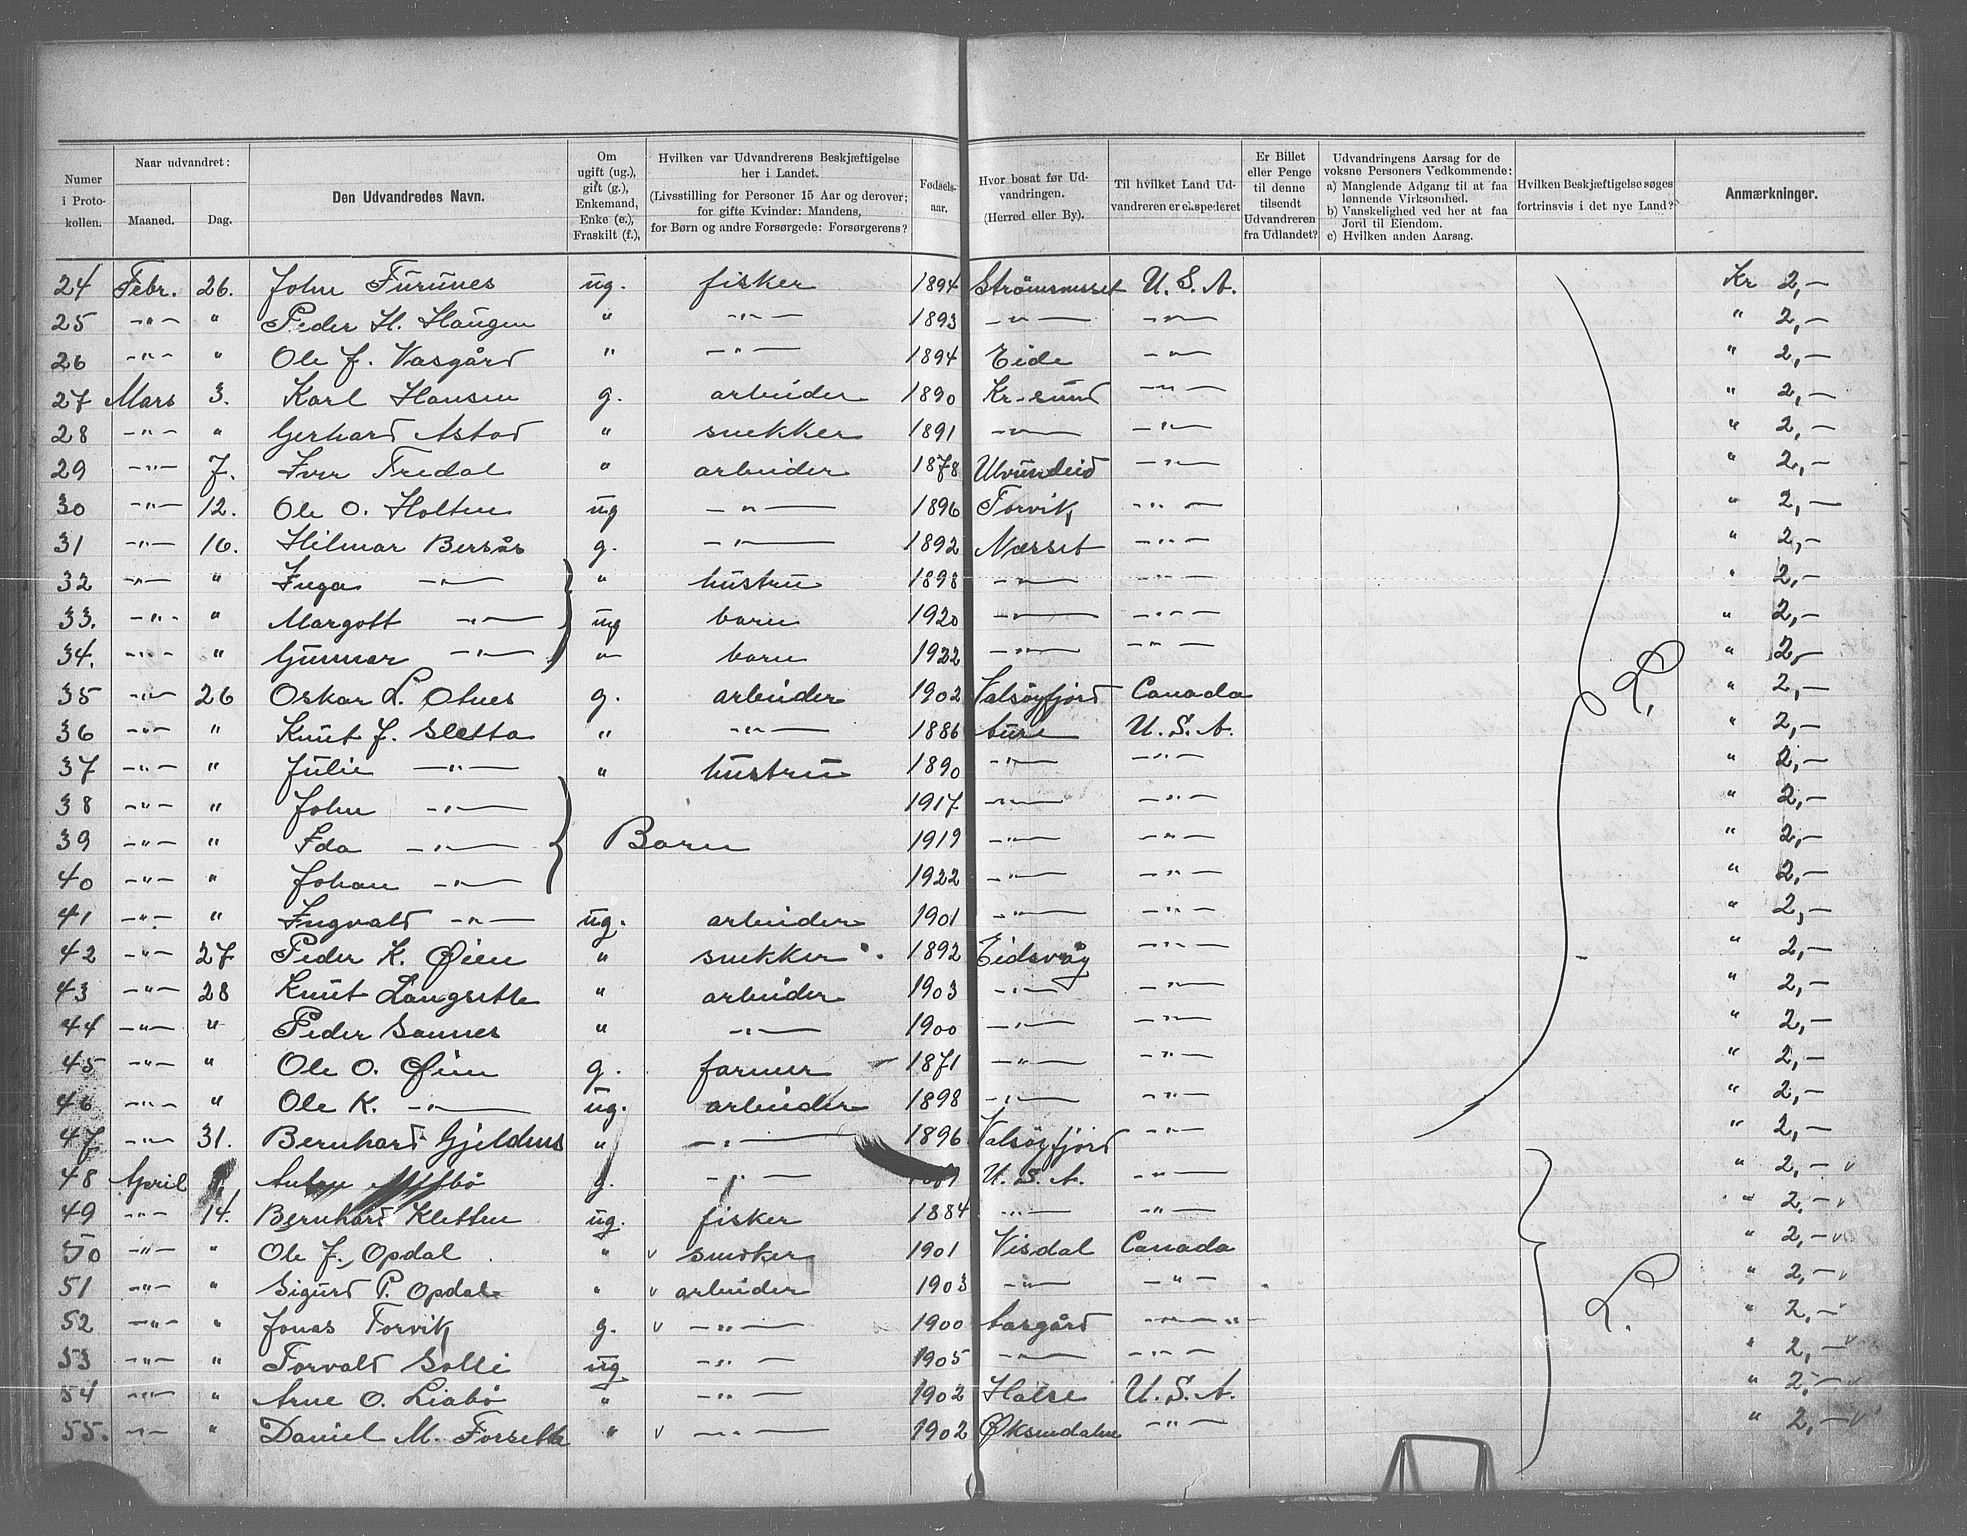 Numer i Proto- kollen. | Naar udvandret: Maaned. Dag. | Den Udvandredes Navn. | Om ugift (ug.), gift (g.), Enkemand, Enke (e.), Fraskilt (f.), | Hvilken var Udvandrerens Beskjæftigelse her i Landet. (Livsstilling for Personer 15 Aar og derover; for gifte Kvinder: Mandens, for Børn og andre Forsørgede: Forsørgerens? | Fødsels- aar. | Hvor bosat før Ud- vandringen. (Herred eller By). | Til hvilket Land Ud- vandreren er expederet | Er Billet eller Penge til denne tilsendt Udvandreren fra Udlandet? | Udvandringens Aarsag for de voksne Personers Vedkommende: a) Manglende Adgang til at faa lønnende Virksomhed. b) Vanskelighed ved her at faa Jord til Eiendom. c) Hvilken anden Aarsag. | Hvilken Beskjæftigelse søges fortrinsvis i det nye Land? | Anmærkninger.
24 Febr. 26. John Furunes ug. fisker 1894 Strömsnesset U.S.A. Kr 2,-
25 -"- " Peder H. Haugen " -"- 1893 -"- -"- " 2,-
26 -"- " Ole J. Vasgård " -"- 1894 Eide -"- " 2,-
27 Mars 3. Karl Hansen g. arbeider 1890 Kr.sund -"- " 2,-
28 -"- " Gerhard Astad " snekker 1891 -"- -"- " 2,-
29 -"- 7. Iver Tredal " arbeider 1878 Ulvundeid -"- " 2,-
30 -"- 12. Ole O. Holten ug -"- 1896 Torvik -"- " 2,-
31 -"- 16. Hilmar Bersås g. -"- 1892 Nesset -"- " 2,-
32 -"- " Inga -"- " hustru 1898 -"- -"- " 2,-
33. -"- " Margott -"- ug barn 1920 -"- -"- " 2,-
34. -"- " Gunnar -"- -"- barn 1922 -"- -"- " 2,-
35 -"- 26 Oskar L. Otnes g. arbeider 1902 Valsöyfjord Canada " 2,-
36 -"- " Knut J. Sletta " -"- 1886 Aure U.S.A. " 2,-
37 -"- " Julie -"- " hustru 1890 -"- -"- " 2,-
38 -"- " John -"- 1917 -"- -"- " 2,-
39 -"- " Ida -"- Barn 1919 -"- -"- " 2,-
40 -"- " Johan -"- 1922 -"- -"- " 2,-
41 -"- " Ingvald -"- ug. arbeider 1901 -"- -"- " 2,-
42 -"- 27 Peder K. Øien " snekker 1892 Eidsvåg -"- " 2,-
43 -"- 28 Knut Langsette " arbeider 1903 -"- -"- " 2,-
44 -"- " Peder Sannes " -"- 1900 -"- -"- " 2,-
45 -"- " Ole O. Øien g. farmer 1871 -"- -"- " 2,-
46 -"- " Ole K. -"- ug. arbeider 1898 -"- -"- " 2,-
47 -"- 31. Bernhard Gjeldnes " -"- 1896 Valsöyfjord -"- " 2,-
48 April Anton g. -"- U.S.A. -"- " 2,-
49 -"- 14. Bernhard Kletten ug. fisker 1884 -"- -"- " 2,-
50 -"- " Ole J. Opdal " snekker 1901 Visdal Canada " 2,-
51 -"- " Sigurd P. Opdal " arbeider 1903 -"- -"- " 2,-
52 -"- " Jonas Torvik g. -"- 1900 Aasgård -"- " 2,-
53 -"- " Torvald Solli ug -"- 1905 -"- -"- " 2,-
54 -"- " Arne O. Liabø " -"- 1902 Halse U.S.A. " 2,-
55. -"- " Daniel M. Forsette " -"- 1902 Øksendalen -"- " 2,-